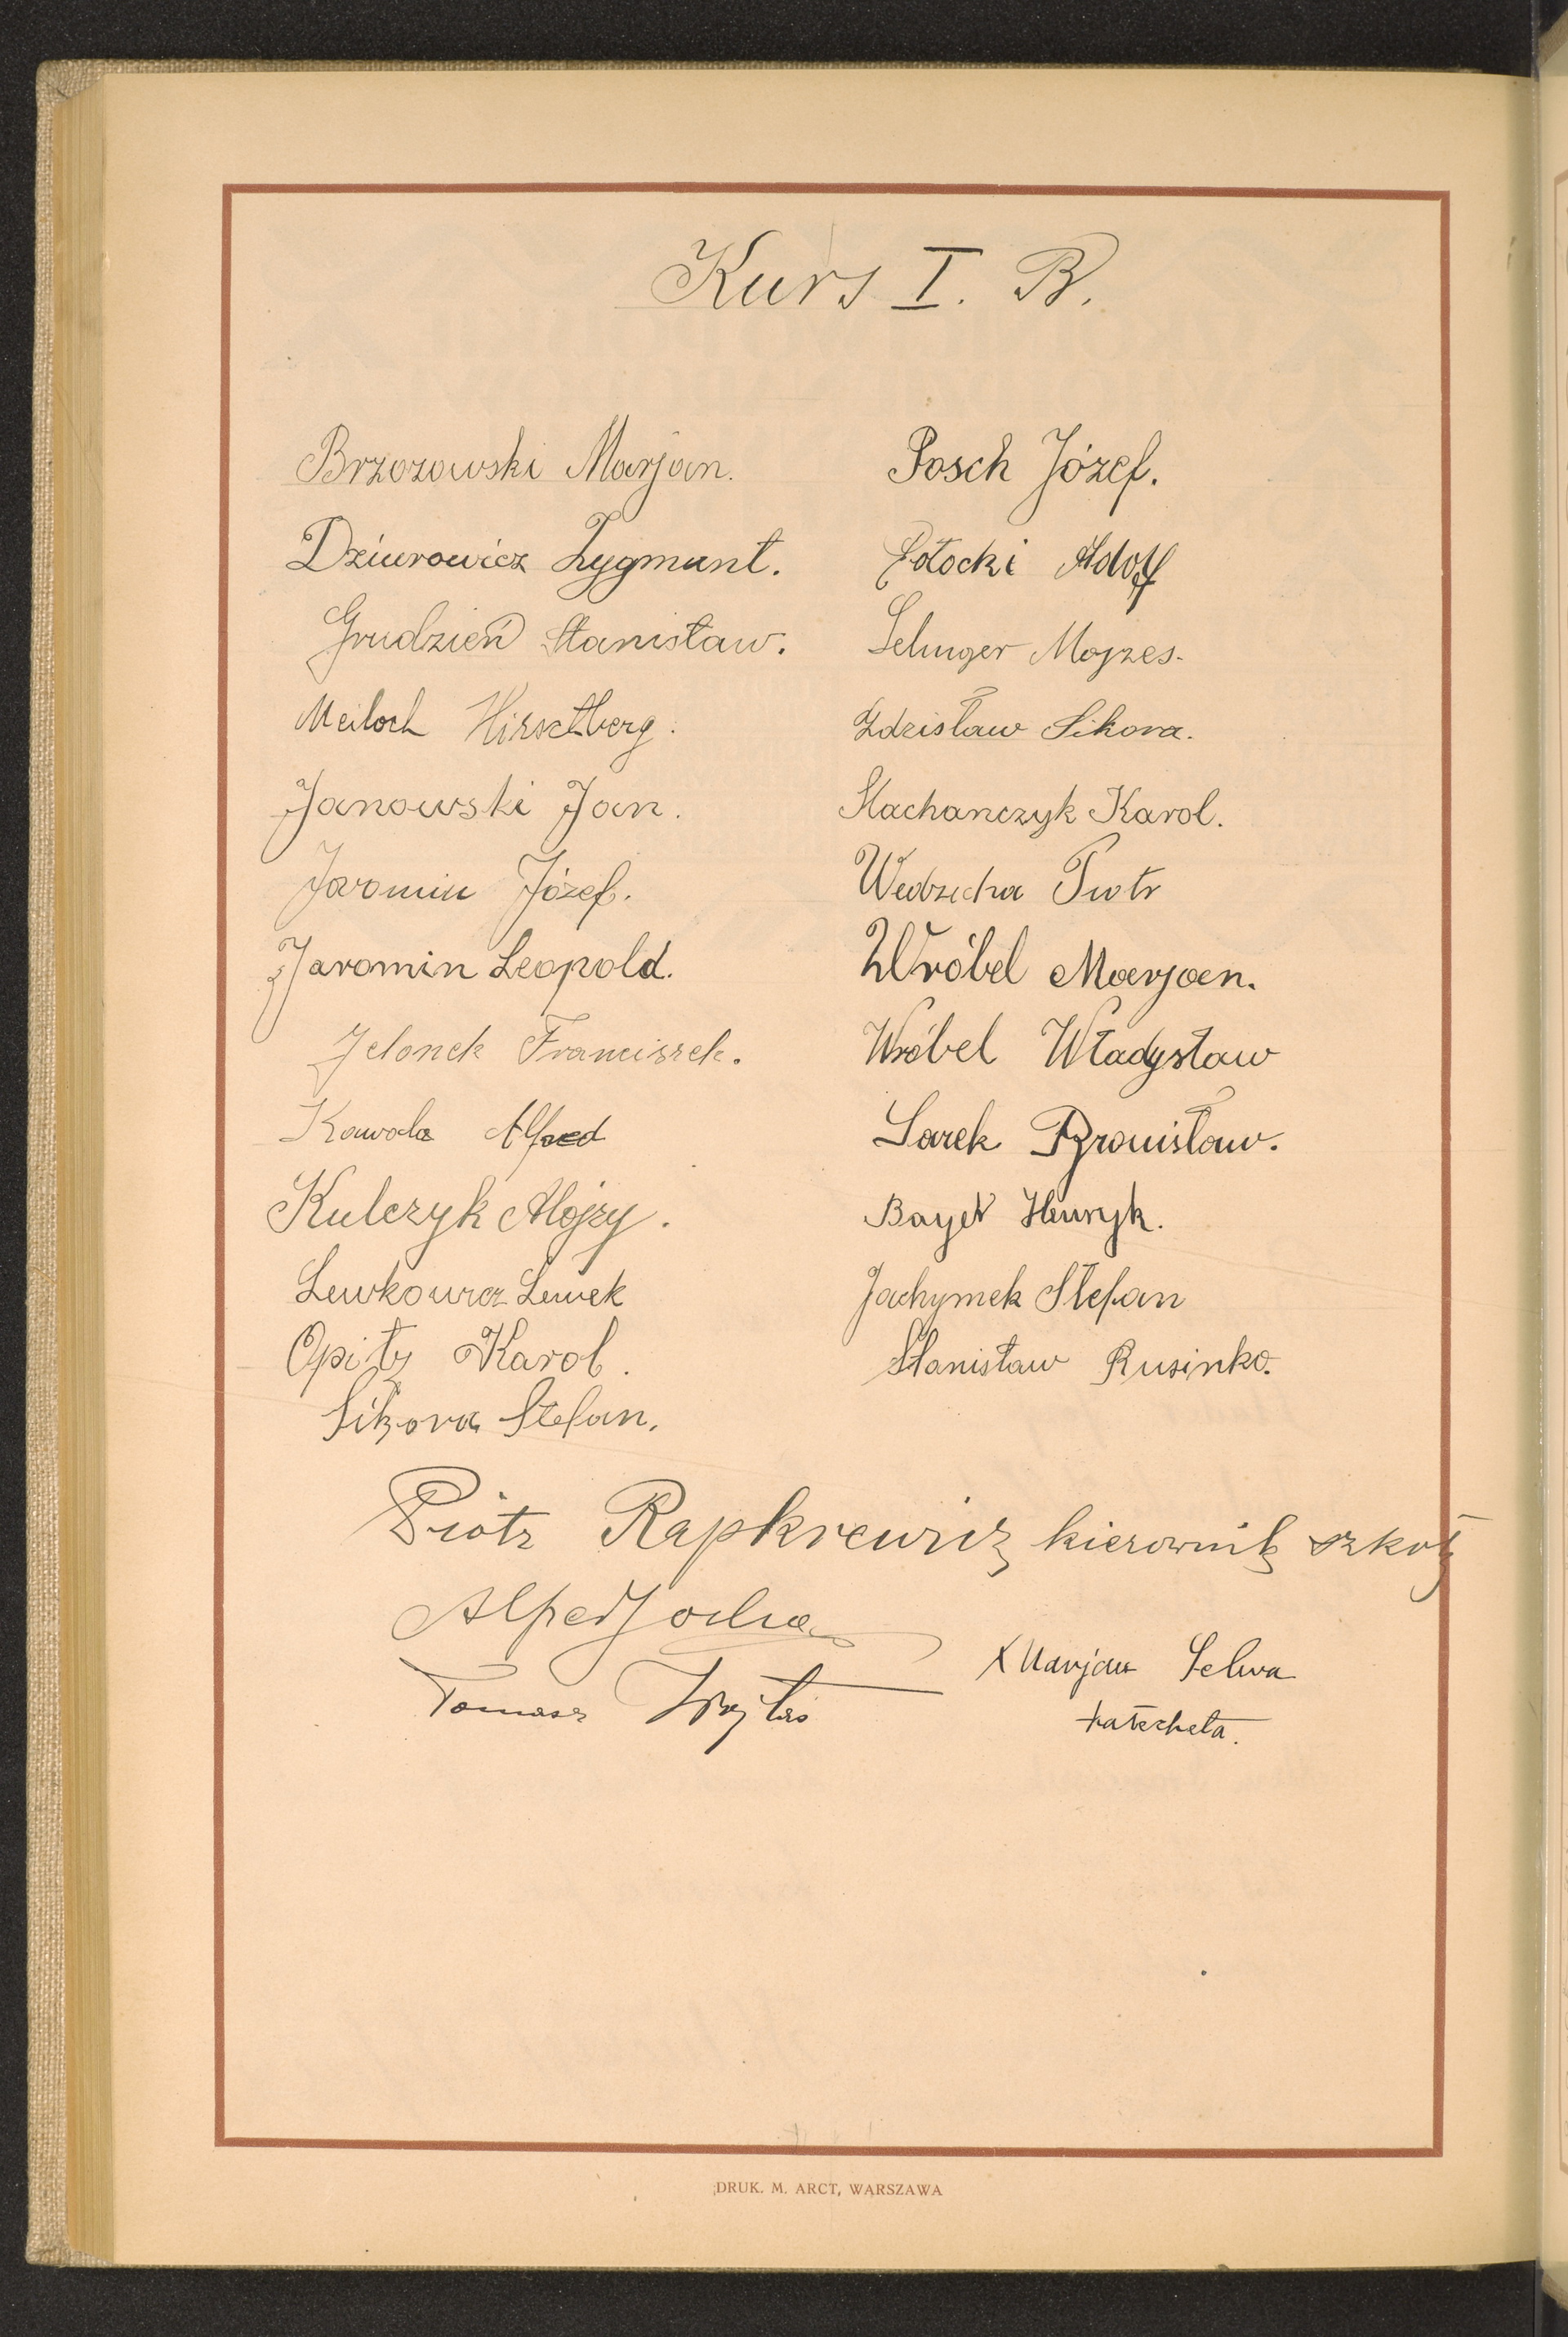 Kurs I. B.
Brzozowski Marjan.
Dziurowicz Zygmunt.
Grudzień Stanisław.
Meiloch Hirschberg.
Janowski Jan.
Jaromin Józef.
Jaromin Leopold.
Jelonek Franciszek.
Kawala Alfred
Kulczyk Alojzy.
Lewkowicz Lewek
Opitz Karol.
Sikora Stefan.
Posch Józef.
Potocki Adolf
Selinger Mojzes.
Zdzisław Sikora.
Stachanczyk Karol.
Wedzicha Piotr
Wróbel Marjan.
Wróbel Władysław
Żarek Bronisław.
Bayer Henryk.
Jachymek Stefan
Stanisław Rusinko.
Piotr Rapkiewicz kierownik szkoły
Alfred
Tomasz Wojtas
X Marjan Selwa
katecheta.
DRUK. M. ARCT, WARSZAWA